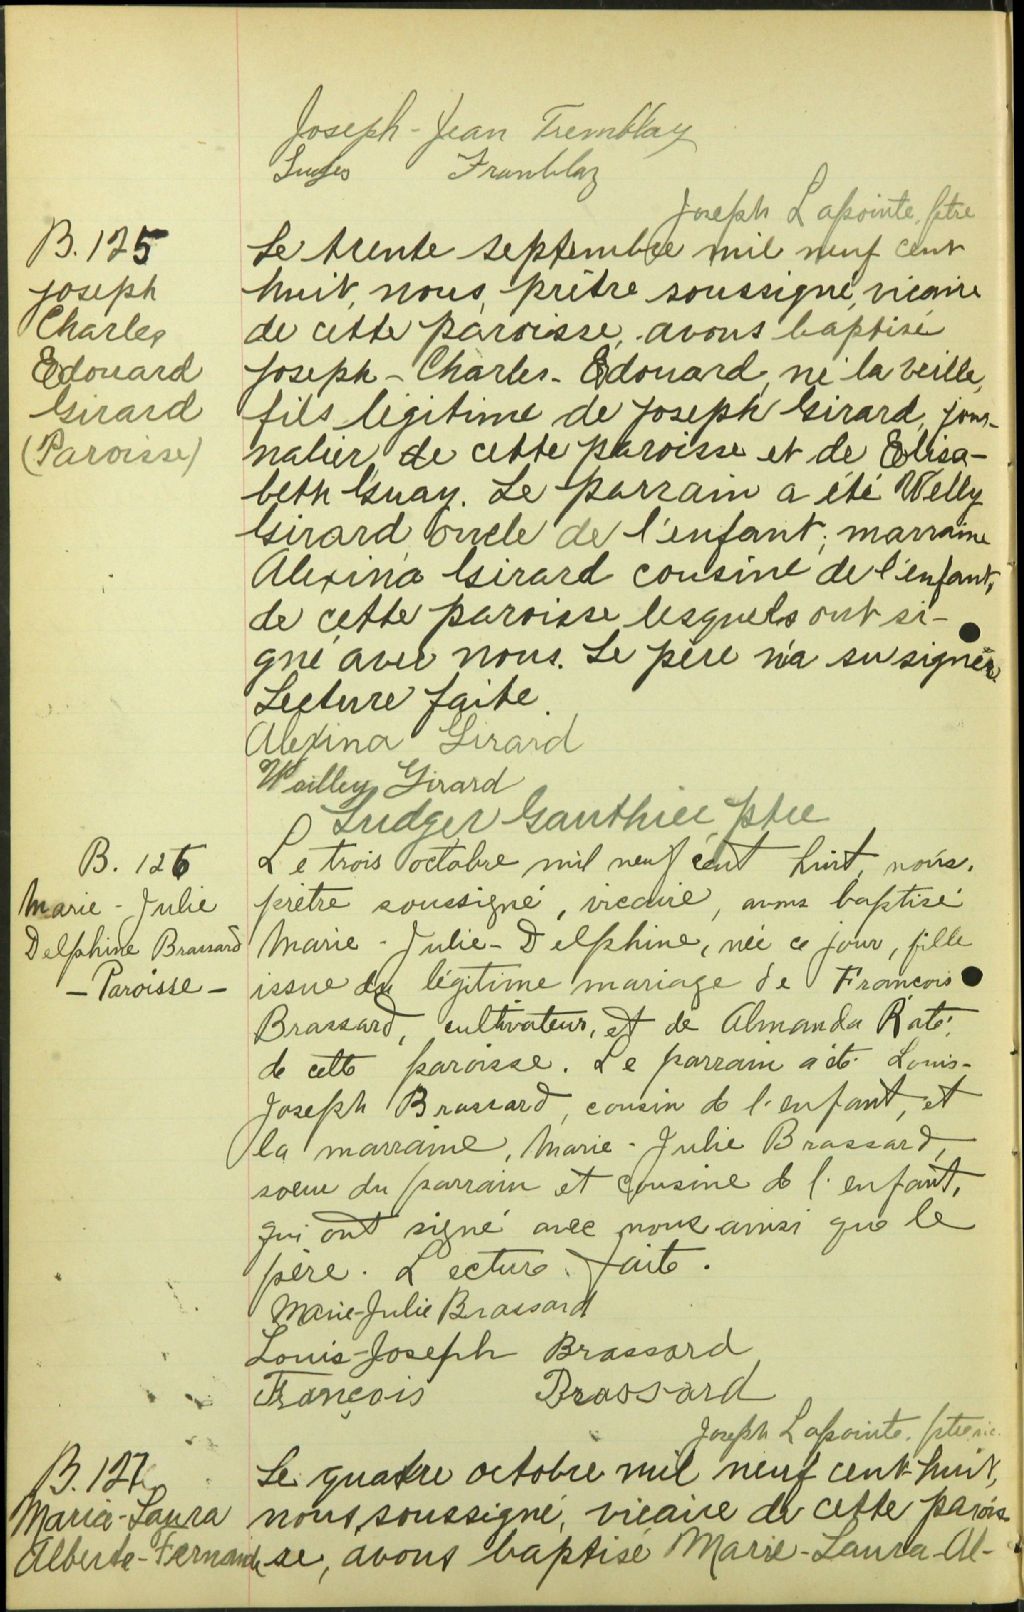 Joseph-Jean Tremblay
Tremblay
Joseph Lapointe, ptre
B. 125
Joseph
Charles
Edouard
Girard
(Paroisse)
Le trente septembre mil neuf cent
huit, nous, prêtre soussigné, vicaire
de cette paroisse, avons baptisé
Joseph-Charles-Edouard, né la veille,
fils légitime de Joseph Girard, jour-
nalier, de cette paroisse et de Elisa-
beth Guay. Le parrain a été Welly
Girard, oncle de l'enfant; marraine
Alexina Girard cousine de l'enfant,
de cette paroisse lesquels ont si-
gné avec nous. Le père n'a su signer.
Lecture faite.
Alexina Girard
Weilley Girard
Ludger Gauthier, ptre
B. 126
Marie-Julie
Delphine Brassard
- Paroisse -
Le trois octobre mil neuf cent huit, nous,
prêtre soussigné, vicaire, avons baptisé
Marie-Julie-Delphine, née ce jour, fille
issue du légitime mariage de François
Brassard, cultivateur, et de Almanda Raté,
de cette paroisse. Le parrain a été Louis-
Joseph Brassard, cousin de l'enfant, et
la marraine, Marie-Julie Brassard,
soeur du parrain et cousine de l'enfant,
qui ont signé avec nous ainsi que le
père. Lecture faite.
Marie-Julie Brassard
Louis-Joseph Brassard
François Brassard
Joseph Lapointe, ptre, vic.
B. 127
Maria-Laura
Alberta-Fernande
Le quatre octobre mil neuf cent huit,
nous, soussigné, vicaire de cette parois-
se, avons baptisé Marie-Laura-Al-